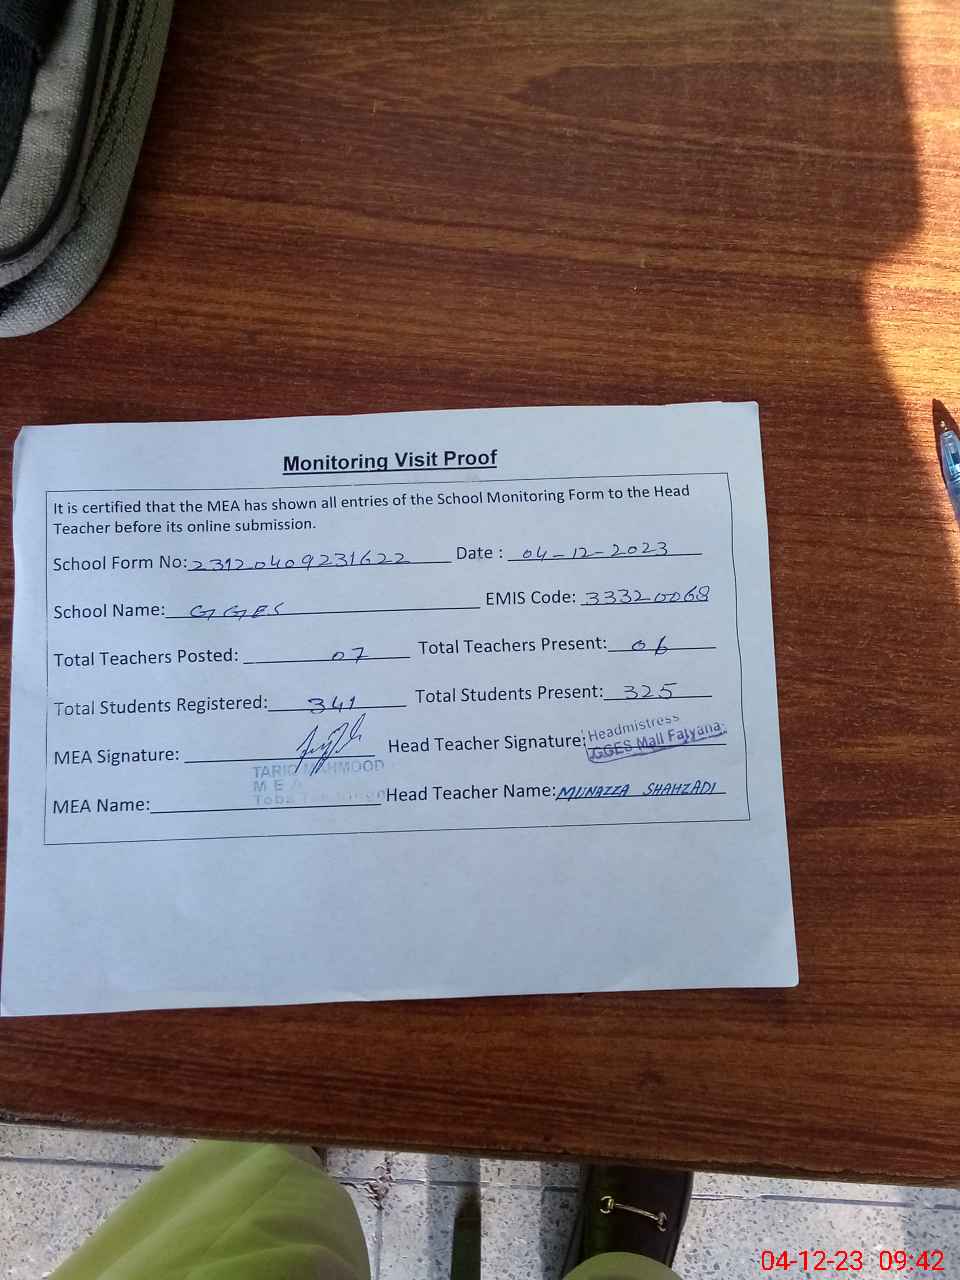 Monitoring Visit Proof
It is certified that the MEA has shown all entries of the School Monitoring Form to the Head
Teacher before its online submission.
School Form No: 23120409231622 Date : 04-12-2023
School Name: GGES EMIS Code: 33320068
Total Teachers Posted: 07 Total Teachers Present: 06
Total Students Registered: 341 Total Students Present: 325
MEA Signature: Head Teacher Signature: Headmistress
GGES Mall Falyana
TARIQ MAHMOOD
M E A
Toba
MEA Name: Head Teacher Name: MUNAZZA SHAHZADI
04-12-23 09:42